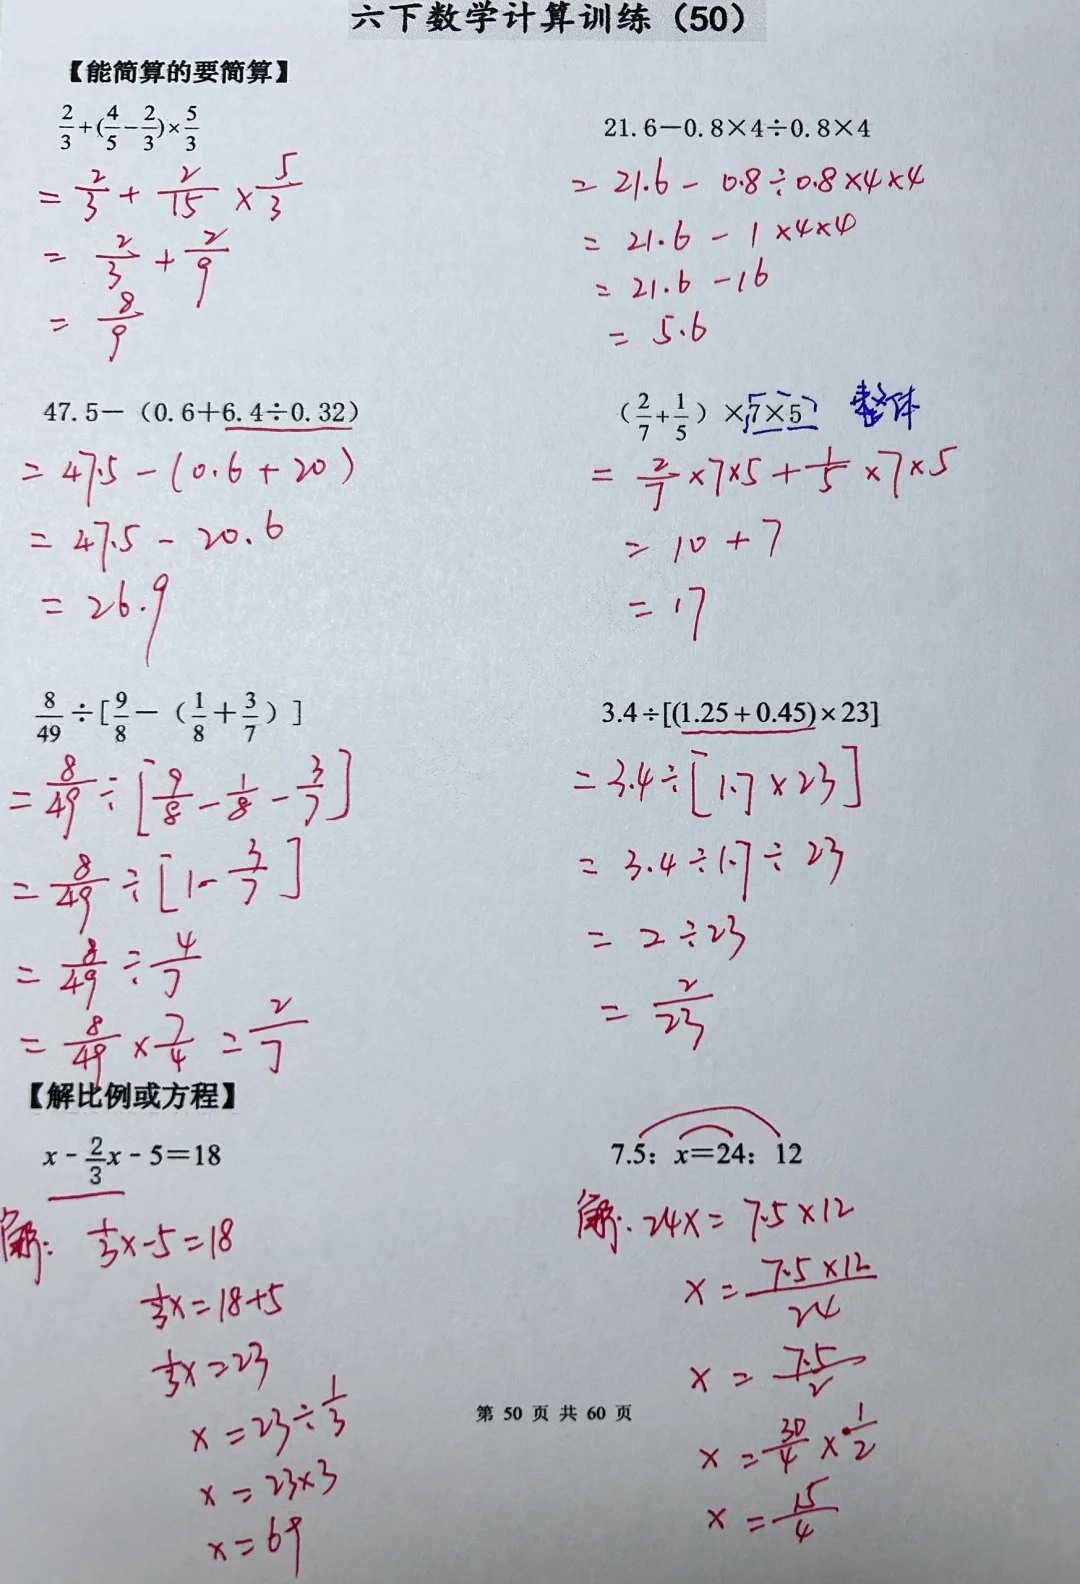 六下数学计算训练（50）
【能简算的要简算】
2/3+(4/5-2/3)×5/3
= 2/3 + 2/15 × 5/3
= 2/3 + 2/9
= 8/9
21.6-0.8×4÷0.8×4
= 21.6 - 0.8÷0.8×4×4
= 21.6 - 1×4×4
= 21.6 - 16
= 5.6
47.5-（0.6+6.4÷0.32）
= 47.5 - (0.6 + 20)
= 47.5 - 20.6
= 26.9
（2/7+1/5）×7×5 整体
= 2/7 ×7×5 + 1/5 ×7×5
= 10 + 7
= 17
8/49÷[9/8-（1/8+3/7）]
= 8/49 ÷ [9/8 - 1/8 - 3/7]
= 8/49 ÷ [1 - 3/7]
= 8/49 ÷ 4/7
= 8/49 × 7/4 = 2/7
3.4÷[(1.25+0.45)×23]
= 3.4÷[1.7×23]
= 3.4÷1.7÷23
= 2÷23
= 2/23
【解比例或方程】
x-2/3x-5=18
解: 1/3x-5=18
1/3x=18+5
1/3x=23
x=23÷1/3
x=23×3
x=69
7.5：x=24：12
解: 24x=7.5×12
x=7.5×12/24
x=7.5/2
x=30/4×1/2
x=15/4
第 50 页 共 60 页